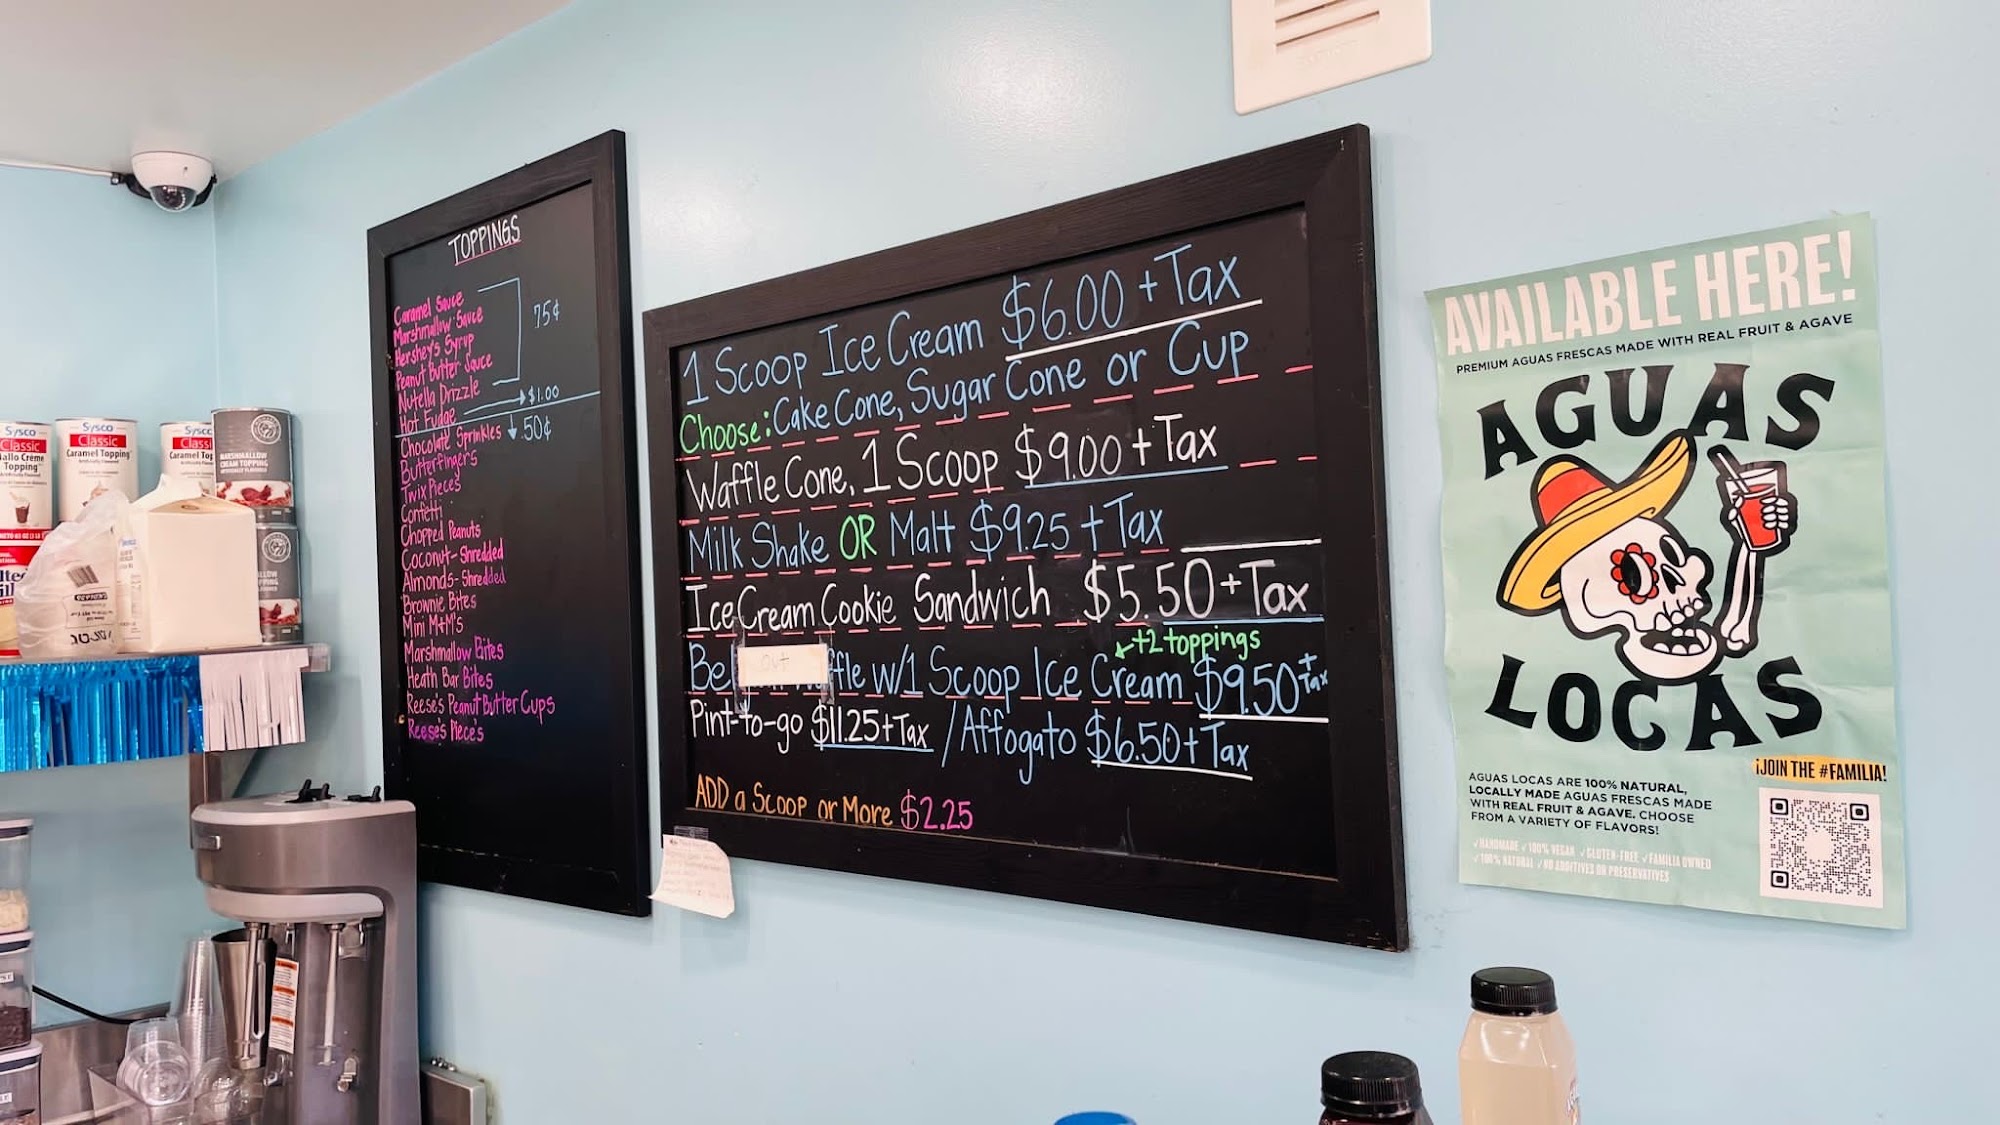 TOPPINGS
Caramel Sauce
Marshmallow Sauce
Hershey's Syrup
Peanut Butter Sauce
Nutella Drizzle
75¢
Hot Fudge → $1.00
Chocolate Sprinkles ↓ .50¢
Butterfingers
Twix Pieces
Confetti
Chopped Peanuts
Coconut-Shredded
Almonds-Shredded
Brownie Bites
Mini M+M's
Marshmallow Bites
Heath Bar Bites
Reese's Peanut Butter Cups
Reese's Piece's
1 Scoop Ice Cream $6.00 + Tax
Choose: Cake Cone, Sugar Cone or Cup
Waffle Cone, 1 Scoop $9.00 + Tax
Milk Shake OR Malt $9.25 + Tax
Ice Cream Cookie Sandwich $5.50 + Tax
+2 toppings
Bel out ffle w/1 Scoop Ice Cream $9.50 + Tax
Pint-to-go $11.25 + Tax / Affogato $6.50 + Tax
ADD a Scoop or More $2.25
AVAILABLE HERE!
PREMIUM AGUAS FRESCAS MADE WITH REAL FRUIT & AGAVE
AGUAS
LOCAS
¡JOIN THE #FAMILIA!
AGUAS LOCAS ARE 100% NATURAL,
LOCALLY MADE AGUAS FRESCAS MADE
WITH REAL FRUIT & AGAVE. CHOOSE
FROM A VARIETY OF FLAVORS!
✓HANDMADE ✓100% VEGAN ✓GLUTEN-FREE ✓FAMILIA OWNED
✓100% NATURAL ✓NO ADDITIVES OR PRESERVATIVES
Sysco
Classic
Topping
Sysco
Classic
Caramel Topping
Artificially Flavored
Sysco
Classic
Caramel Top
MARSHMALLOW
CREAM TOPPING